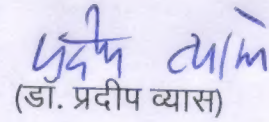 प्रदीप व्यास
(डॉ. प्रदीप व्यास)